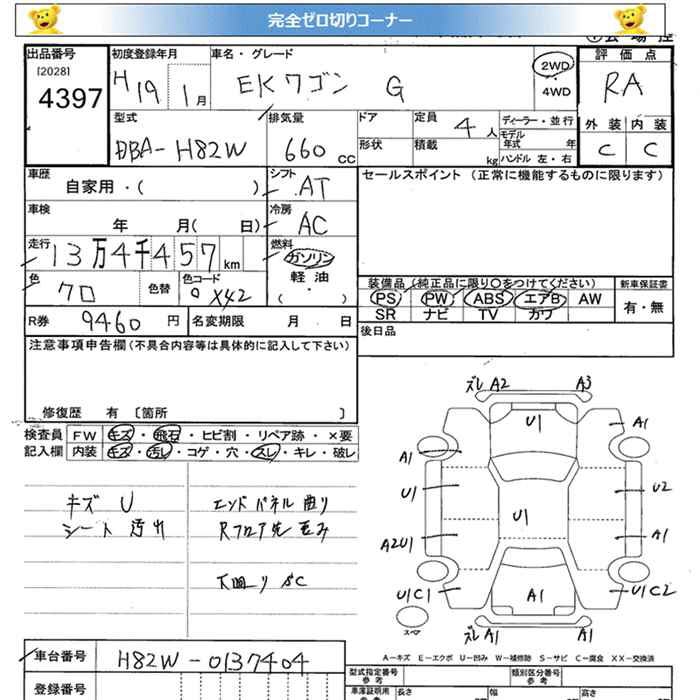 完全ゼロ切りコーナー
出品番号 初度登録年月 車名・グレード 評価点
[2028] H19 1月 EKワゴン G 2WD RA
4397 ・4WD
型式 排気量 ドア 定員 4人 ディーラー・並行 外装 内装
モデル年式 年
DBA-H82W 660cc 形状 積載 kg ハンドル 左・右 C C
車歴 シフト セールスポイント(正常に機能するものに限ります)
自家用・( ) AT
車検 冷房
年 月( 日) AC
走行 燃料
13万4千457km ガソリン
色 色替 色コード 軽油 装備品(純正品に限り〇をつけてください) 新車保証書
クロ X42 ・( ) PS PW ABS エアB AW 有・無
SR ナビ TV カワ
R券 9460円 名変期限 月 日 後日品
注意事項申告欄(不具合内容等は具体的に記入して下さい)
修復歴 有 〔箇所 〕
検査員 FW キズ・飛石・ヒビ割・リペア跡・×要
記入欄 内装 キズ・汚れ・コゲ・穴・スレ・キレ・破レ
キズ U エンドパネル曲り
シート汚れ Rフロア先歪み
下回りSC
ズレ A2 A3
U1 A1
A1
U1 U2
U1
A2U1 A1
U1C1 A1 U1C2
スペア
ズレ A1 A1
A-キズ E-エクボ U-凹み W-補修跡 S-サビ C-腐食 XX-交換済
車台番号 H82W-0137404 型式指定番号 参考 類別区分番号 参考
登録番号 車庫証明用 参考 長さ 幅 高さ